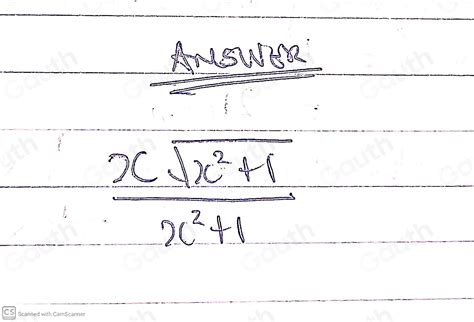 ANSWER
x √x²+1
x²+1
CS Scanned with CamScanner